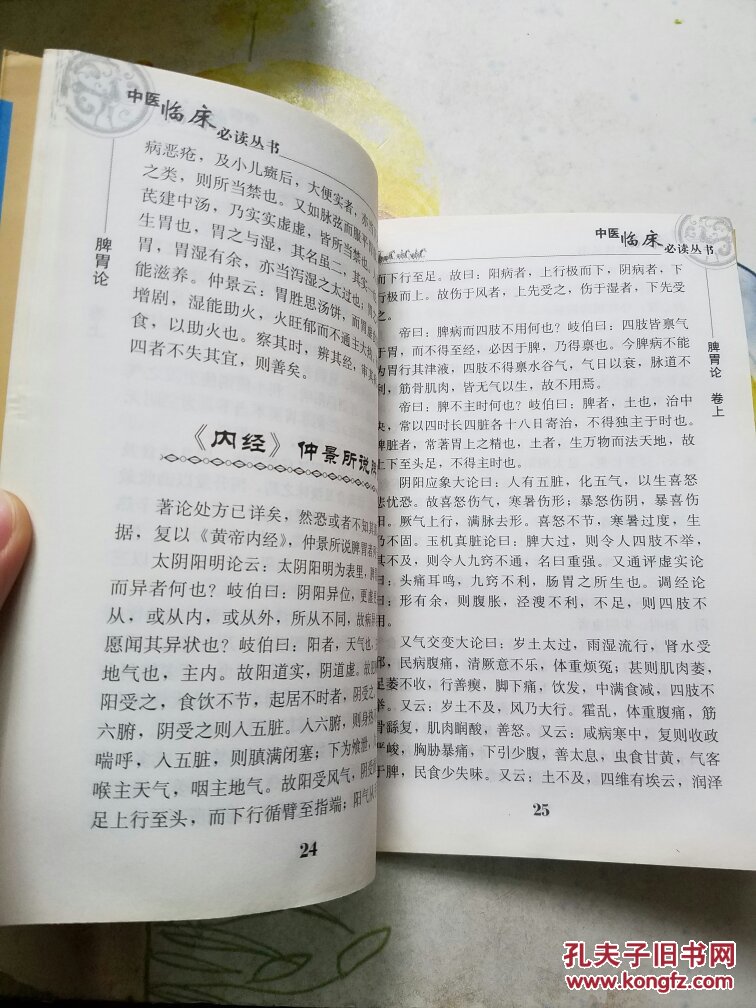 中医临床必读丛书
脾胃论
卷上
病恶疮，及小儿癍后，大便实者，亦
之类，则所当禁也。又如脉弦而腹
芪建中汤，乃实实虚虚，皆所当禁也。
生胃也，胃之与湿，其名虽二，其实一
胃，胃湿有余，亦当泻湿之太过也；胃
能滋养。仲景云：胃胜思汤饼，而胃虚
增剧，湿能助火，火旺郁而不通主大
食，以助火也。察其时，辨其经，审其
四者不失其宜，则善矣。
《内经》仲景所说
著论处方已详矣，然恐或者不知其
据，复以《黄帝内经》，仲景所说脾胃
太阴阳明论云：太阴阳明为表里，
而异者何也？岐伯曰：阴阳异位，更
从，或从内，或从外，所从不同，故病
愿闻其异状也？岐伯曰：阳者，天气也，
地气也，主内。故阳道实，阴道虚。故
阳受之，食饮不节，起居不时者，阴受之
六腑，阴受之则入五脏。入六腑，则身
喘呼，入五脏，则䐜满闭塞；下为飧泄
喉主天气，咽主地气。故阳受风气，阴受
足上行至头，而下行循臂至指端；阳气从
24
中医临床必读丛书
脾胃论 卷上
而下行至足。故曰：阳病者，上行极而下，阴病者，下
行极而上。故伤于风者，上先受之，伤于湿者，下先受
之。
帝曰：脾病而四肢不用何也？岐伯曰：四肢皆禀气
于胃，而不得至经，必因于脾，乃得禀也。今脾病不能
为胃行其津液，四肢不得禀水谷气，气日以衰，脉道不
利，筋骨肌肉，皆无气以生，故不用焉。
帝曰：脾不主时何也？岐伯曰：脾者，土也，治中
央，常以四时长四脏各十八日寄治，不得独主于时也。
脾脏者，常著胃土之精也，土者，生万物而法天地，故
上下至头足，不得主时也。
阴阳应象大论曰：人有五脏，化五气，以生喜怒
悲忧恐。故喜怒伤气，寒暑伤形；暴怒伤阴，暴喜伤
阳。厥气上行，满脉去形。喜怒不节，寒暑过度，生
乃不固。玉机真脏论曰：脾太过，则令人四肢不举，
其不及，则令人九窍不通，名曰重强。又通评虚实论
曰：头痛耳鸣，九窍不利，肠胃之所生也。调经论
曰：形有余，则腹胀，泾溲不利，不足，则四肢不
用。
又气交变大论曰：岁土太过，雨湿流行，肾水受
邪，民病腹痛，清厥意不乐，体重烦冤；甚则肌肉萎，
足萎不收，行善瘈，脚下痛，饮发，中满食减，四肢不
举。又云：岁土不及，风乃大行。霍乱，体重腹痛，筋
骨繇复，肌肉瞤酸，善怒。又云：咸病寒中，复则收政
严峻，胸胁暴痛，下引少腹，善太息，虫食甘黄，气客
于脾，民食少失味。又云：土不及，四维有埃云，润泽
25
孔夫子旧书网
www.kongfz.com